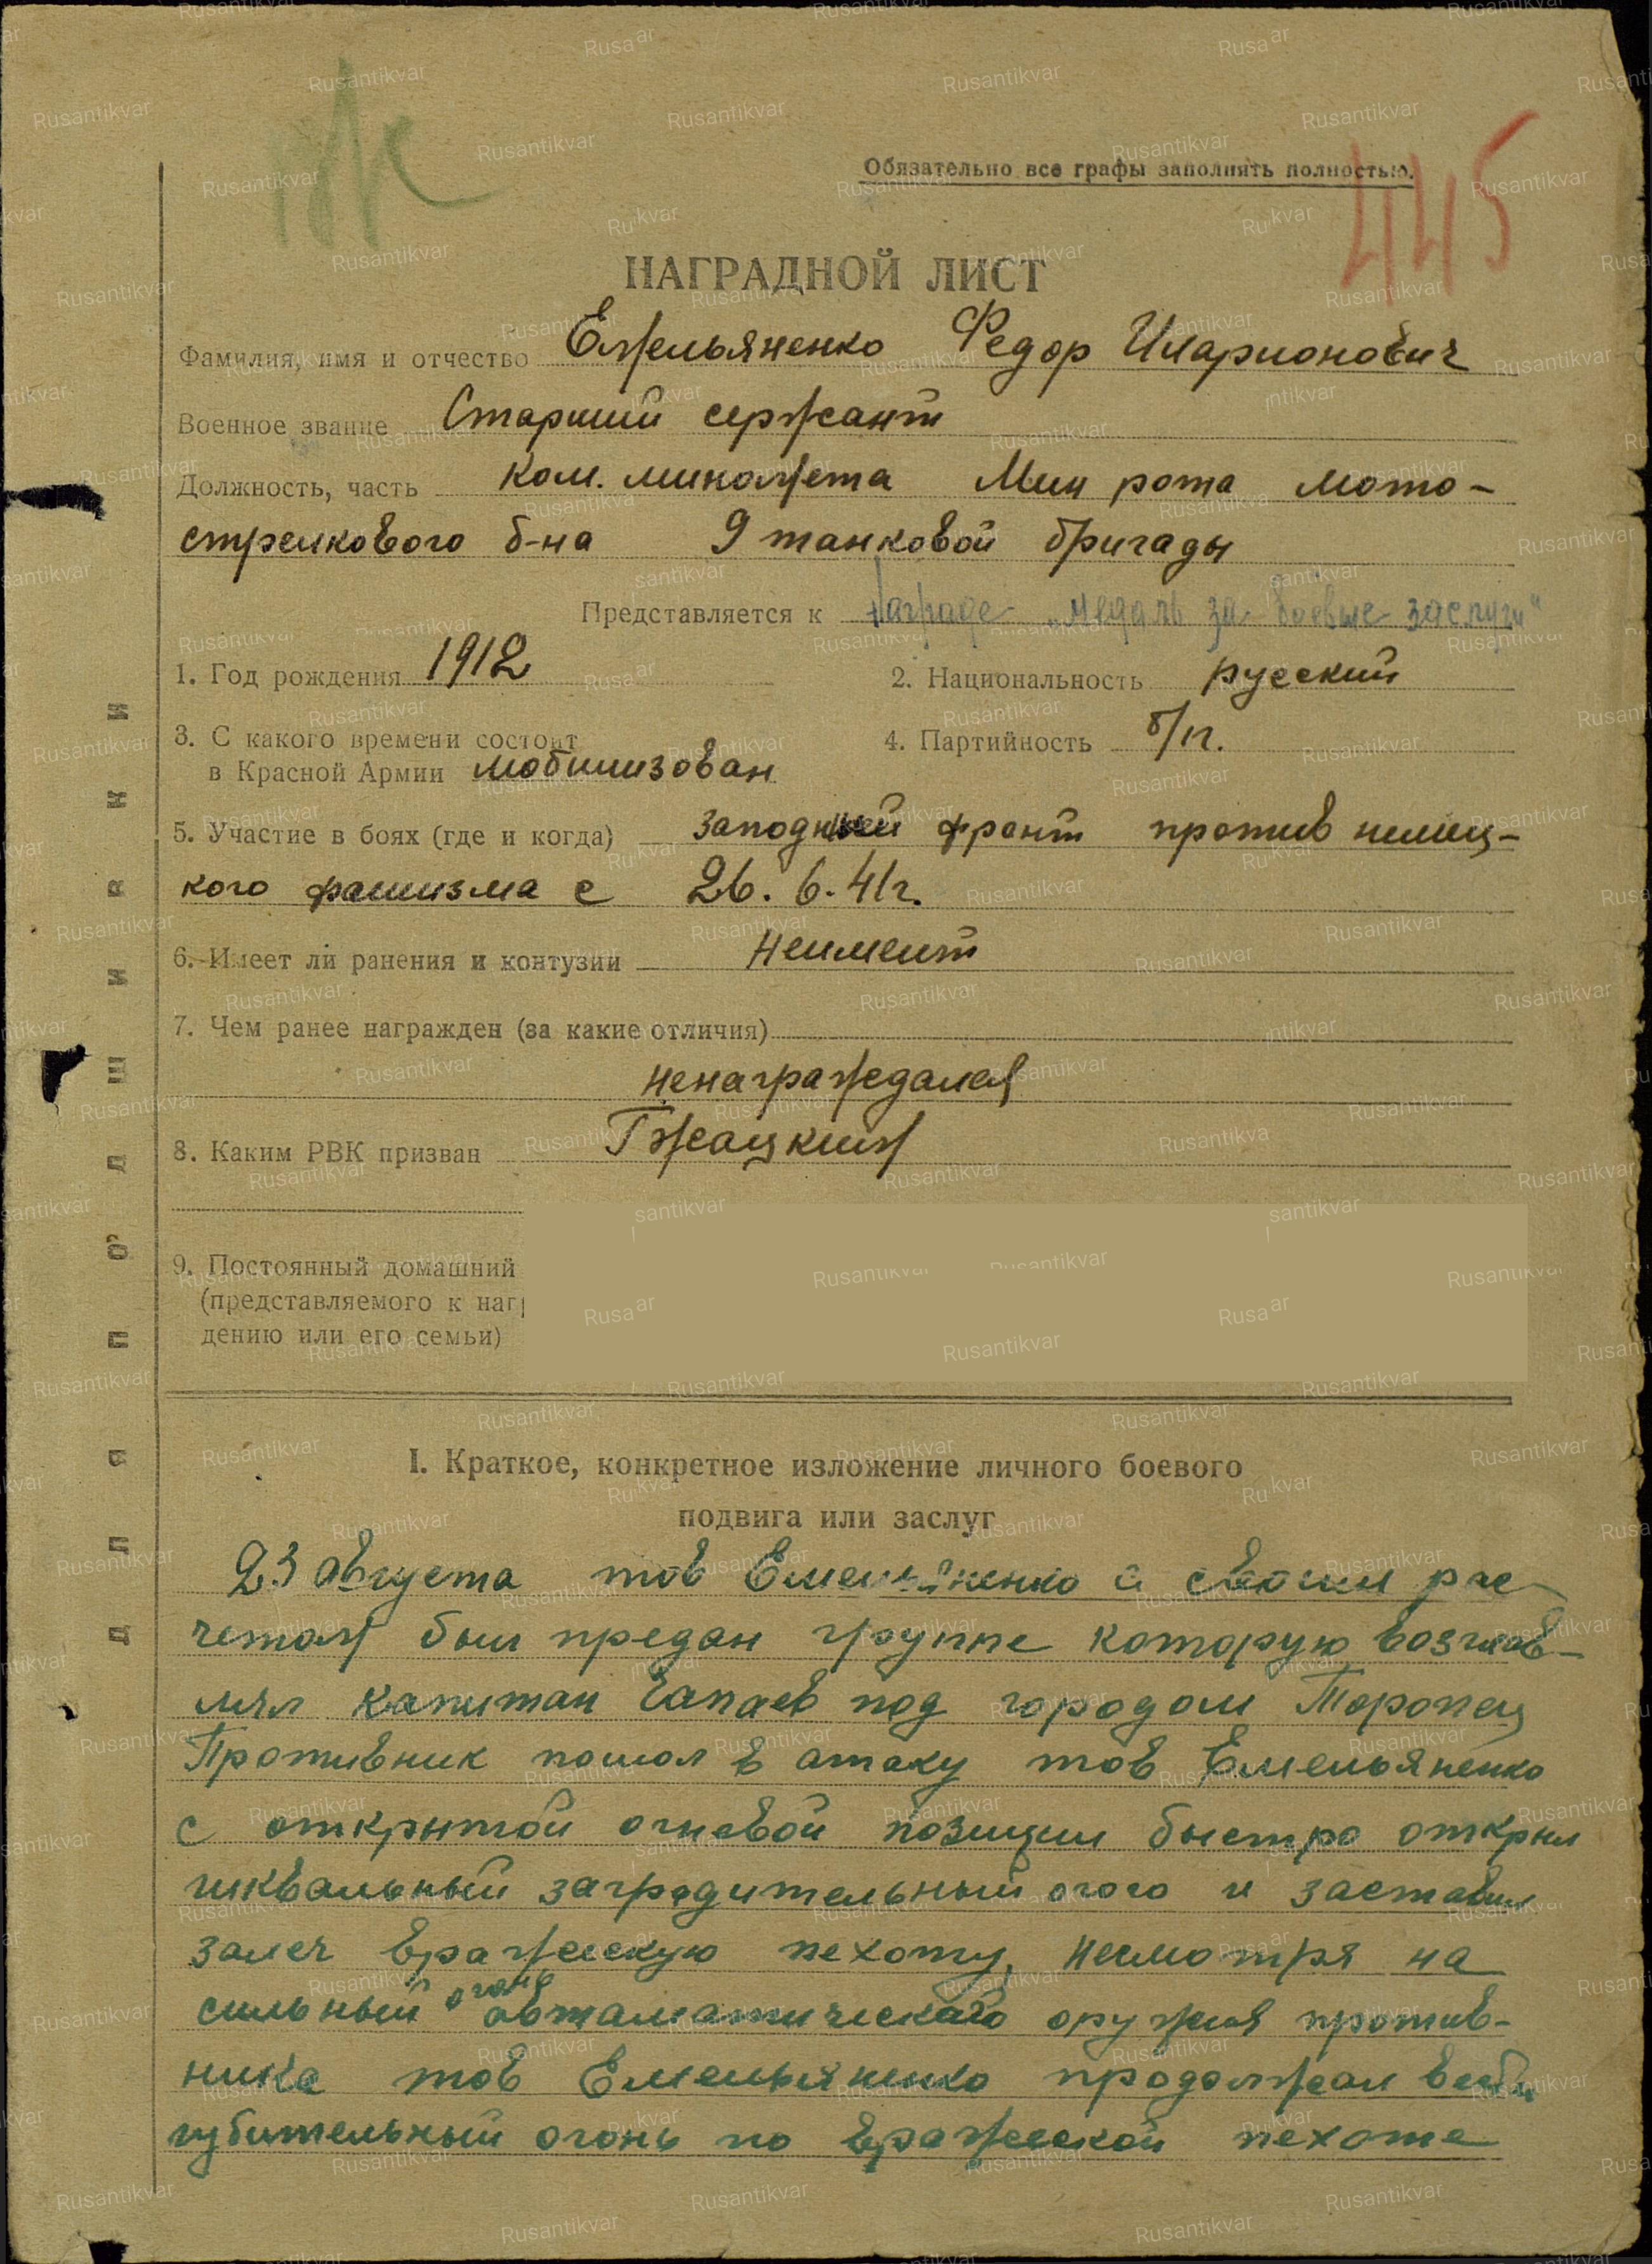 445
Обязательно все графы заполнять полностью.
НАГРАДНОЙ ЛИСТ
Фамилия, имя и отчество Емельяненко Федор Иларионович
Военное звание Старший сержант
Должность, часть Ком. миномета Мин рота мото-
стрелкового б-на 9 танковой бригады
Представляется к награде „медаль за боевые заслуги"
1. Год рождения 1912
2. Национальность русский
3. С какого времени состоит
в Красной Армии мобилизован
4. Партийность б/п.
5. Участие в боях (где и когда) Заподный фронт против немец-
кого фашизма с 26.6.41г.
6. Имеет ли ранения и контузии Неимеит
7. Чем ранее награжден (за какие отличия)
ненаграждался
8. Каким РВК призван Гжацким
9. Постоянный домашний
(представляемого к наг
дению или его семьи)
Для подшивки
I. Краткое, конкретное изложение личного боевого
подвига или заслуг
23 августа тов Емельяненко с своим рас-
четом был предан группе которую возглав-
лял капитан Чапаев под городом Торопец
Противник пошол в атаку тов Емельяненко
с открытой огневой позиции быстро открыл
шквальный заградительный огого и заставил
залеч вражескую пехоту, несмотря на
сильный огонь автаматического оружия против-
ника тов Емельяненко продолжал вести
губительный огонь по вражеской пехоте
Rusantikvar